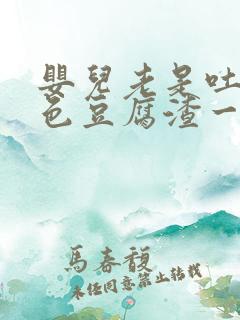 嬰兒老是吐
色豆腐渣一
馬春馥
未经同意禁止转载